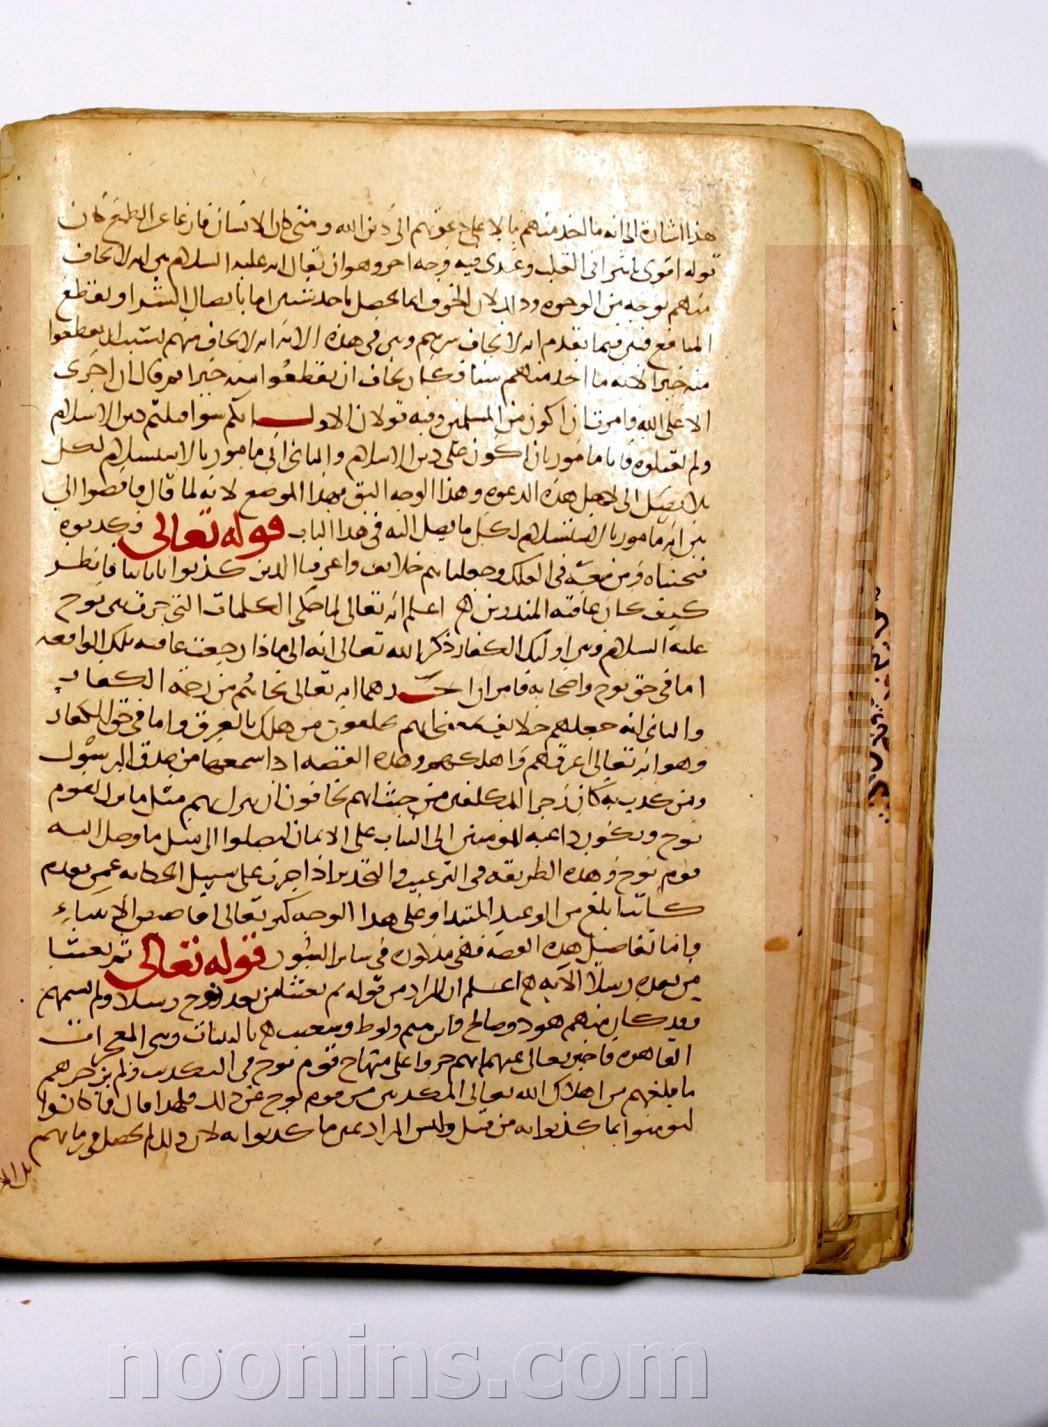 هذا اشارة الى انه ما اخذ منهم مالا على دعوتهم الى دين الله ومتى كان الانسان فارغا عن الطمع كان
قوله اقوى تاثيرا فى القلب وعندى فيه وجه اخر وهو ان يقال انه عليه السلام بين انه لا يخاف
منهم بوجه من الوجوه وذلك لان الخوف انما يحصل باحد شيئين اما بايصال الشر او بقطع
المنافع فبين فيما تقدم انه لا يخاف شرهم وبين فى هذه الاية انه لا يخاف منهم بسبب ان يقطعوا
منه خيرا لانه ما اخذ منهم شيئا فكان يخاف ان يقطعوا منه خيرا ثم قال ان اجرى
الا على الله وامرت ان اكون من المسلمين وفيه قولان الاول انكم سوا قبلتم دين الاسلام
ولم تقبلوه فانا مامور بان اكون على دين الاسلام والثانى انى مامور بالاستسلام لكل
ما يصل الى لاجل هذه الدعوه وهذا الوجه اليق بهذا الموضع لانه لما قال ثم اقضوا الى
بين انه مامور بالاستسلام لكل ما يصل اليه فى هذا الباب قوله تعالى فكذبوه
فنجيناه ومن معه فى الفلك وجعلناهم خلائف واغرقنا الذين كذبوا باياتنا فانظر
كيف كان عاقبة المنذرين اعلم انه تعالى لما حكى الكلمات التى جرت بين نوح
عليه السلام وبين اولئك الكفار ذكر الله تعالى انه الى ماذا رجعت عاقبه تلك الواقعه
اما فى حق نوح واصحابه فامران احدهما انه تعالى نجاهم من الكفار
والثانى انه جعلهم خلائف بمعنى انهم يخلفون من هلك بالغرق واما فى حق الكفار
فهو انه تعالى اغرقهم واهلكهم وهذه القصه اذا سمعها من صدق الرسول
ومن كذب به كان زجرا للمكلفين من حيث انهم يخافون ان ينزل بهم مثل ما نزل بقوم
نوح ويكون داعيه للمومنين الى الثبات على الايمان ليصلوا الى مثل ما وصل اليه
قوم نوح وهذه الطريقه فى الترغيب والتحذير اذا جرت على سبيل الحكايه عمن تقدم
كانت ابلغ من الوعيد المبتدا وعلى هذا الوجه ذكر تعالى اقاصيص الانبياء
واما تفاصيل هذه القصه فهى مذكوره فى سائر السور قوله تعالى ثم بعثنا
من بعده رسلا الايه اعلم ان المراد من قوله ثم بعثنا من بعد نوح رسلا ولم يسمهم
وقد كان منهم هود وصالح وابراهيم ولوط وشعيب بالبينات وهى المعجزات
القاهره فاخبر تعالى عنهم انهم جروا على منهاج قوم نوح فى التكذيب ولم يزجرهم
ما بلغهم من اهلاك الله تعالى المكذبين من قوم نوح عن ذلك فلهذا قال فما كانوا
ليومنوا بما كذبوا به من قبل وليس المراد عين ما كذبوا به لان ذلك لم يحصل فى زمانهم
www.noonins.com
noonins.com